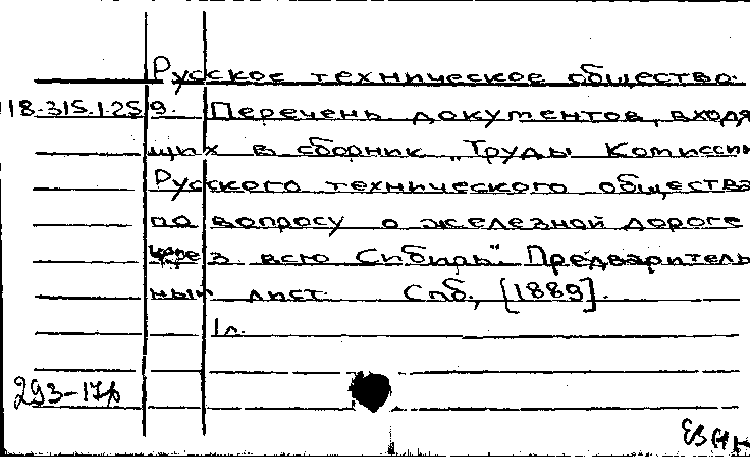 Русское техническое общество.
118.315.1.259. Перечень документов, входя
щих в сборник „Труды Комиссии
Русского технического общества
по вопросу о железной дороге
через всю Сибирь". Предваритель
ный лист. Спб., [1889].
1 л.
293-17б